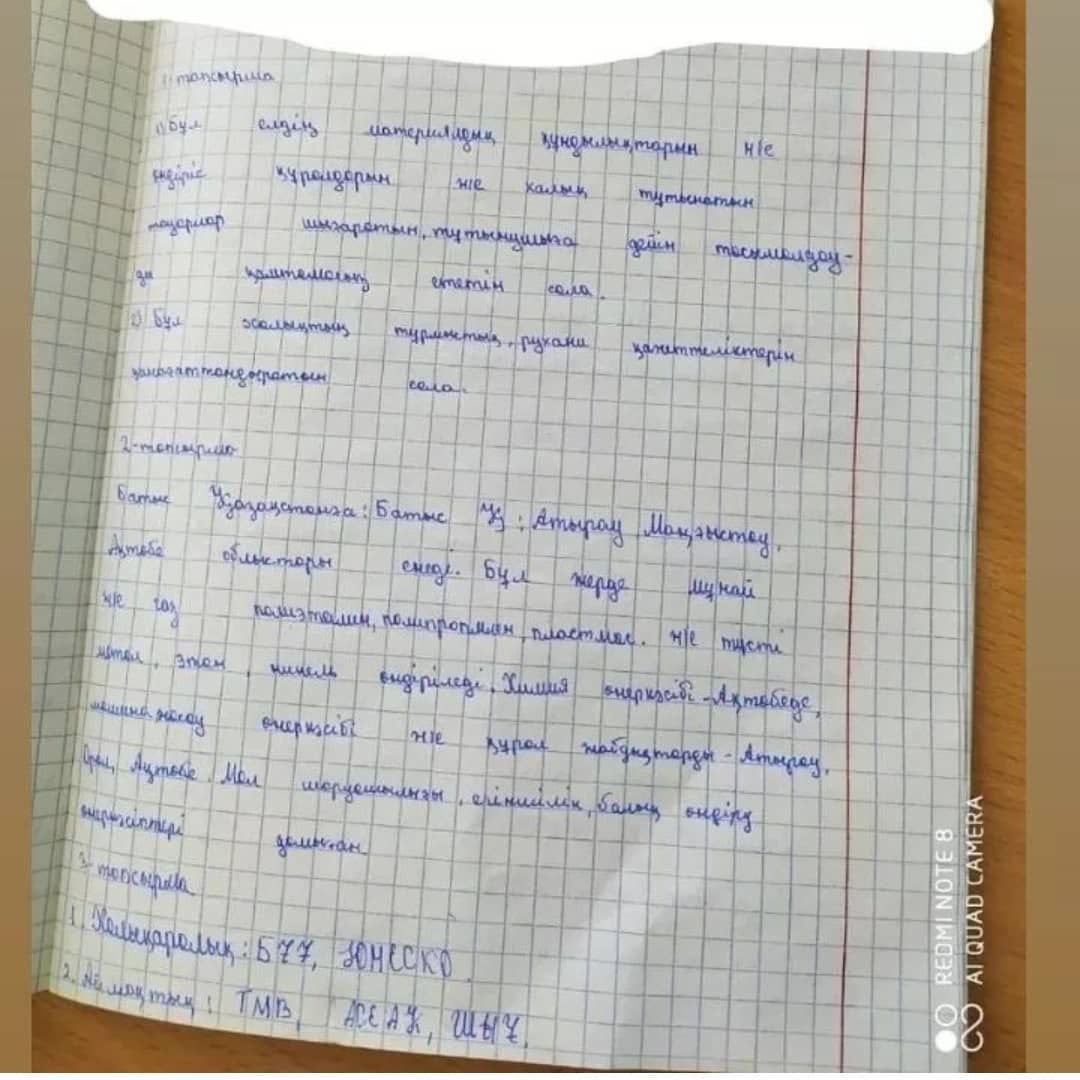 1-тапсырма
1) Бұл елдің материялдық құндылықтарын ж/е
өндіріс құралдарын ж/е халық тұтынатын
тауарлар шығаратын, тұтынушыға дейін тасымалдау-
ды қамтамасыз ететін сала.
2) Бұл халықтың тұрмыстық, рухани қажеттеліктерін
қанағаттандыратын сала.
2-тапсырма
Батыс Қазақстанға: Батыс Қз; Атырау, Маңғыстау,
Ақтөбе облыстары енеді. Бұл жерде мұнай
ж/е газ полиэтилин, полипропилен, пластмас. ж/е түсті
метал, этан, никель өндіріледі. Химия өнеркәсібі - Ақтөбеде,
машина жасау өнеркәсібі ж/е құрал жабдықтарды - Атырау,
Орал, Ақтөбе. Мал шаруашылығы, егіншілік, балық өндіру
өнеркәсіптері дамыған
3-тапсырма
1. Халықаралық: БҰҰ, ЮНЕСКО.
2. Аймақтық: ТМД, ЕАЭО, ШЫҰ.
REDMI NOTE 8
AI QUAD CAMERA